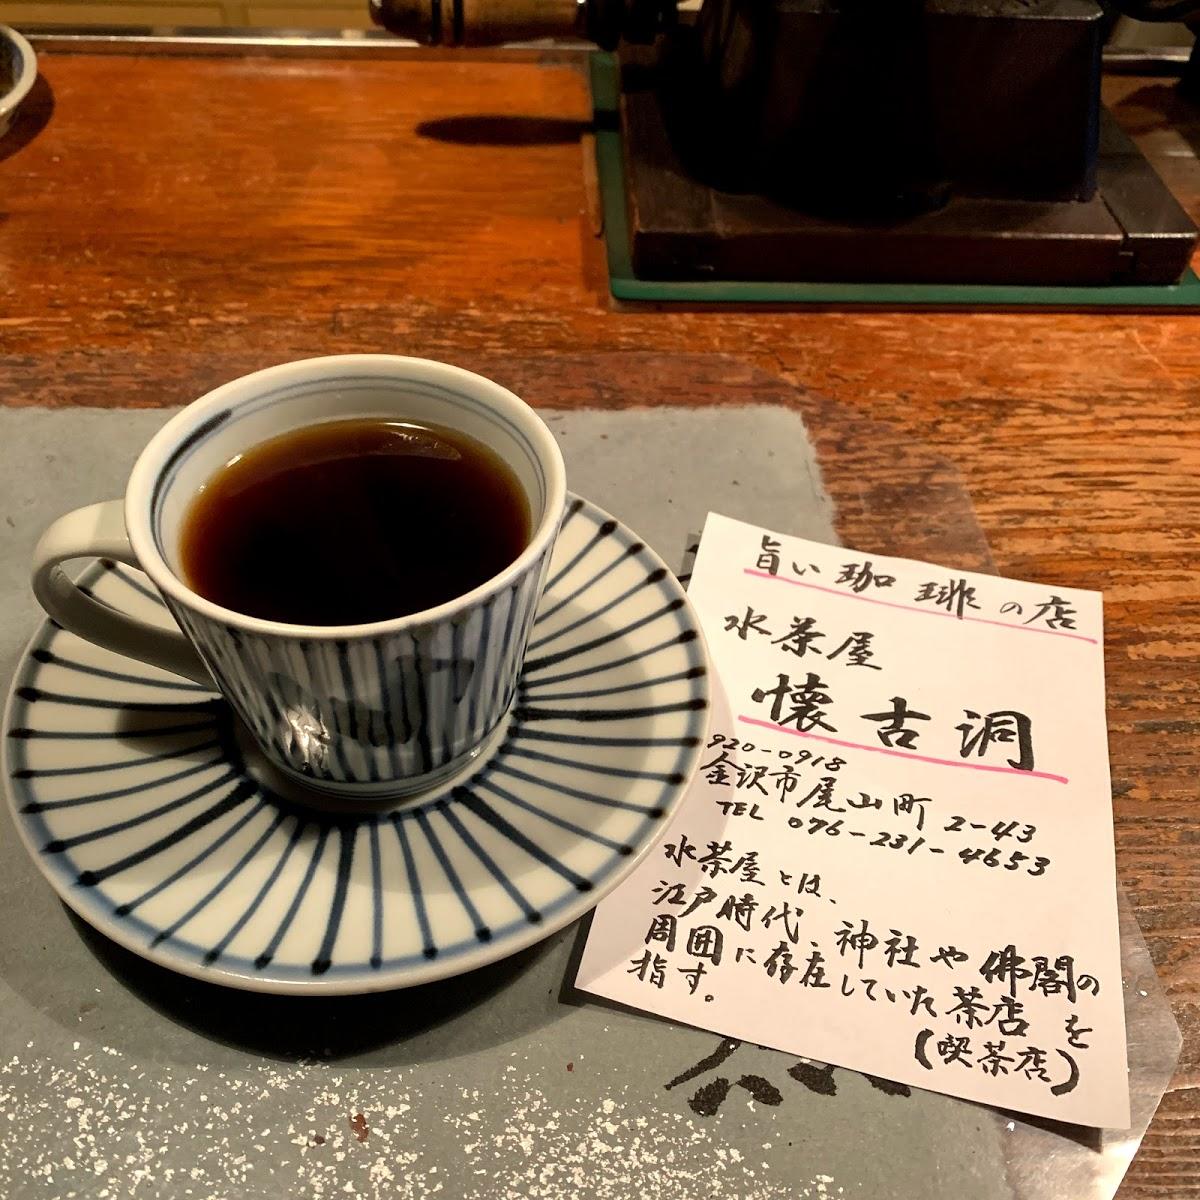 旨い珈琲の店
水茶屋
懐古洞
920-0918
金沢市尾山町 2-43
TEL 076-231-4653
水茶屋とは、
江戸時代、神社や佛閣の
周囲に存在していた茶店を
指す。
(喫茶店)